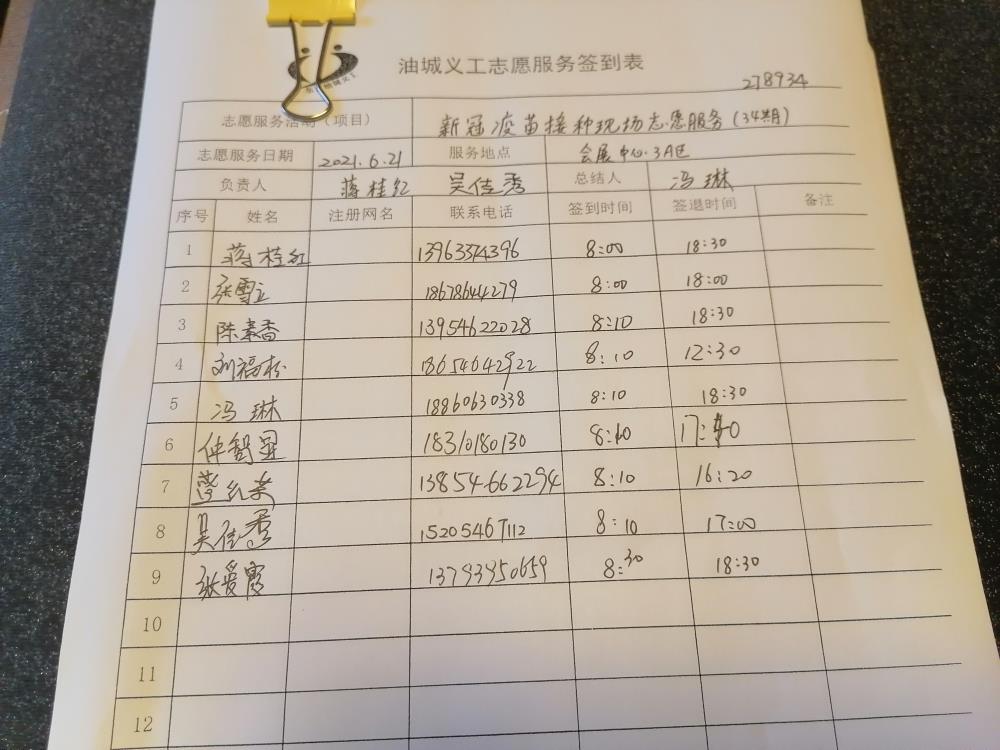 油城义工志愿服务签到表
278934
志愿服务活动（项目） 新冠疫苗接种现场志愿服务（34期）
志愿服务日期 2021.6.21 服务地点 会展中心3A区
负责人 蒋桂红 吴佳秀 总结人 冯琳
序号 姓名 注册网名 联系电话 签到时间 签退时间 备注
1 蒋桂红 13963374396 8:00 18:30
2 张雪立 18678644279 8:00 18:00
3 陈素香 13954622028 8:10 18:30
4 刘福松 18654642922 8:10 12:30
5 冯琳 18860630338 8:10 18:30
6 仲智显 18310180130 8:10
7 13854662294 8:10 16:20
8 吴佳秀 15205467112 8:10 17:00
9 张爱霞 13793950659 8:30 18:30
10
11
12